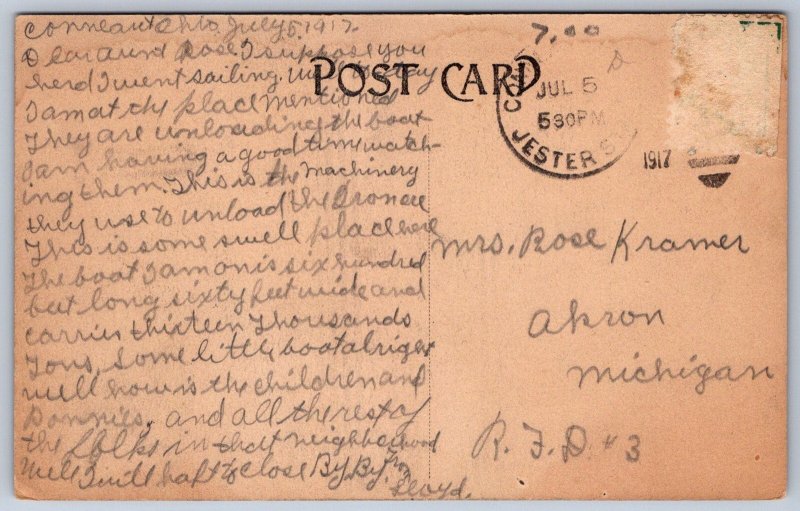 Conneaut Ohio July 5, 1917
Dear aunt Rose I suppose you
herd I went sailing. Well today
I am at the place mentioned
They are unloading the boat
I am having a good time watch-
ing them. This is the machinery
they use to unload the Iron ore
This is some swell place here
The boat I am on is six hundred
feet long sixty feet wide and
carries thirteen thousands
Tons, Some little boat alright
well how is the children and
Donnies, and all the rest of
the folks in that neighborhood
Well I will haft to close By. By. from
Lloyd.
POST CARD
7.00
JUL 5
530PM
JESTER S
1917
Mrs. Rose Kramer
Akron
Michigan
R. F. D # 3